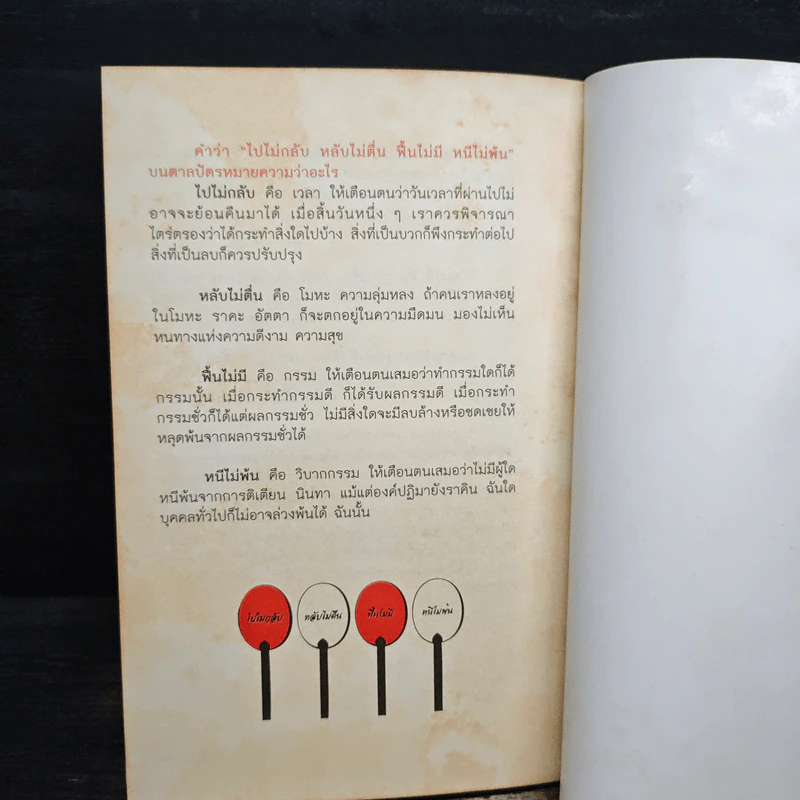 คำว่า “ไปไม่กลับ หลับไม่ตื่น ฟื้นไม่มี หนีไม่พ้น”
บนตาลปัตรหมายความว่าอะไร
ไปไม่กลับ คือ เวลา ให้เตือนตนว่าวันเวลาที่ผ่านไปไม่
อาจจะย้อนคืนมาได้ เมื่อสิ้นวันหนึ่ง ๆ เราควรพิจารณา
ไตร่ตรองว่าได้กระทำสิ่งใดไปบ้าง สิ่งที่เป็นบวกก็พึงกระทำต่อไป
สิ่งที่เป็นลบก็ควรปรับปรุง
หลับไม่ตื่น คือ โมหะ ความลุ่มหลง ถ้าคนเราหลงอยู่
ในโมหะ ราคะ อัตตา ก็จะตกอยู่ในความมืดมน มองไม่เห็น
หนทางแห่งความดีงาม ความสุข
ฟื้นไม่มี คือ กรรม ให้เตือนตนเสมอว่าทำกรรมใดก็ได้
กรรมนั้น เมื่อกระทำกรรมดี ก็ได้รับผลกรรมดี เมื่อกระทำ
กรรมชั่วก็ได้แต่ผลกรรมชั่ว ไม่มีสิ่งใดจะมีลบล้างหรือชดเชยให้
หลุดพ้นจากผลกรรมชั่วได้
หนีไม่พ้น คือ วิบากกรรม ให้เตือนตนเสมอว่าไม่มีผู้ใด
หนีพ้นจากการติเตียน นินทา แม้แต่องค์ปฏิมายังราคิน ฉันใด
บุคคลทั่วไปก็ไม่อาจล่วงพ้นได้ ฉันนั้น
ไปไม่กลับ หลับไม่ตื่น ฟื้นไม่มี หนีไม่พ้น